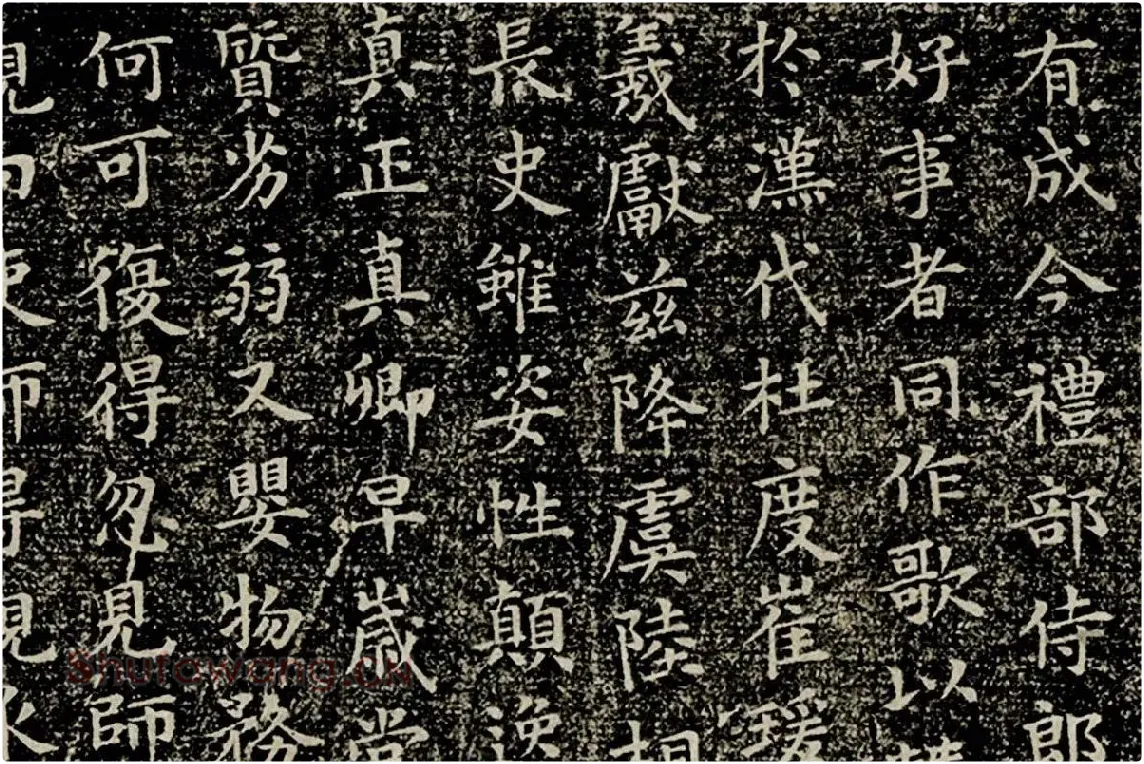 有成今禮部侍郎
好事者同作歌以
於漢代杜度崔瑗
羲獻茲降虞陸相
長史雖姿性顛
真正真卿早歲
質劣弱又嬰物務
何可復得忽見師
Shufawang.CN